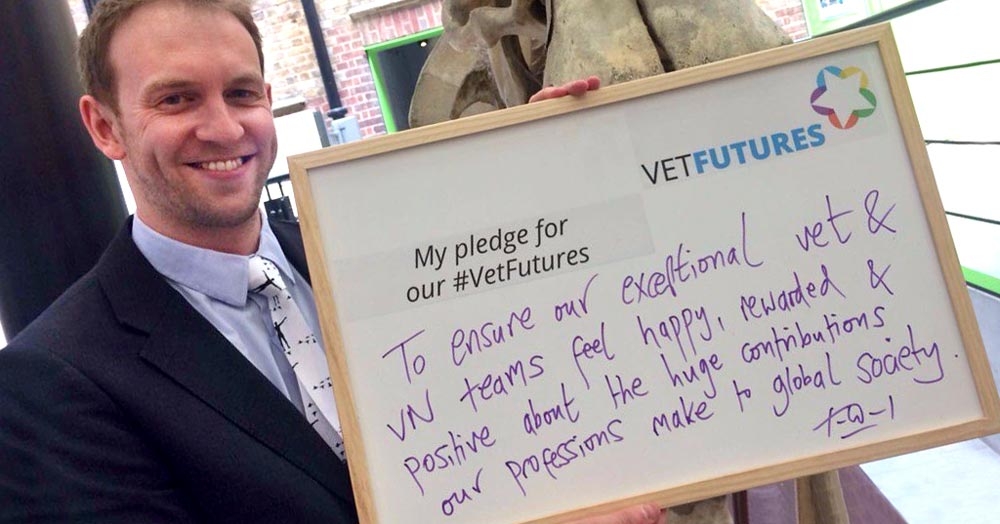 VETFUTURES
My pledge for
our #VetFutures
To ensure our exceptional vet &
VN teams feel happy, rewarded &
positive about the huge contributions
our professions make to global society.